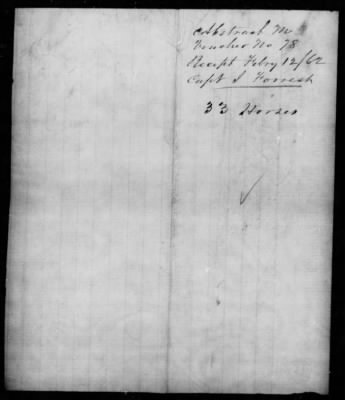 Abstract M
Voucher No 78
Receipt Febry 12/62
Capt J Forrest
33 Horses